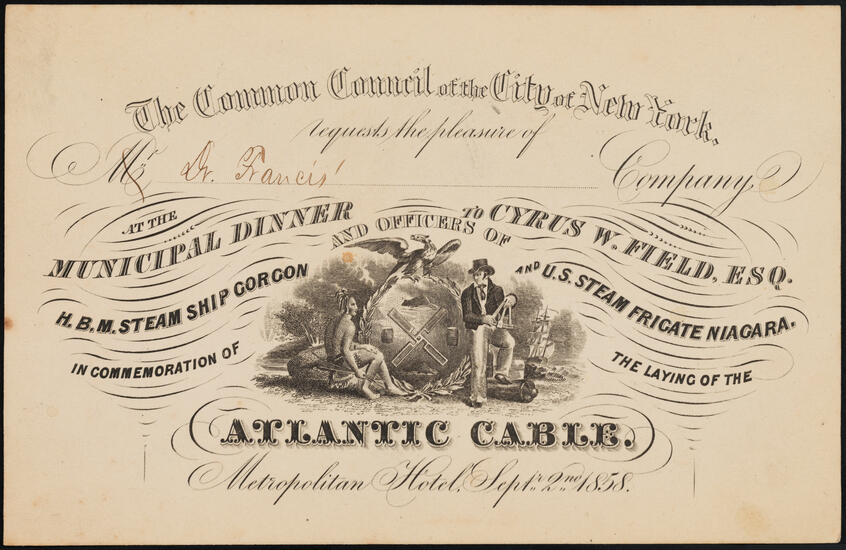 The Common Council of the City of New York.
requests the pleasure of
Mr. Dr. Francis' Company
AT THE
MUNICIPAL DINNER TO CYRUS W. FIELD, ESQ.
AND OFFICERS OF
H.B.M. STEAM SHIP GORGON AND U.S. STEAM FRIGATE NIAGARA.
IN COMMEMORATION OF THE LAYING OF THE
ATLANTIC CABLE.
Metropolitan Hotel, Septr. 2nd 1858.